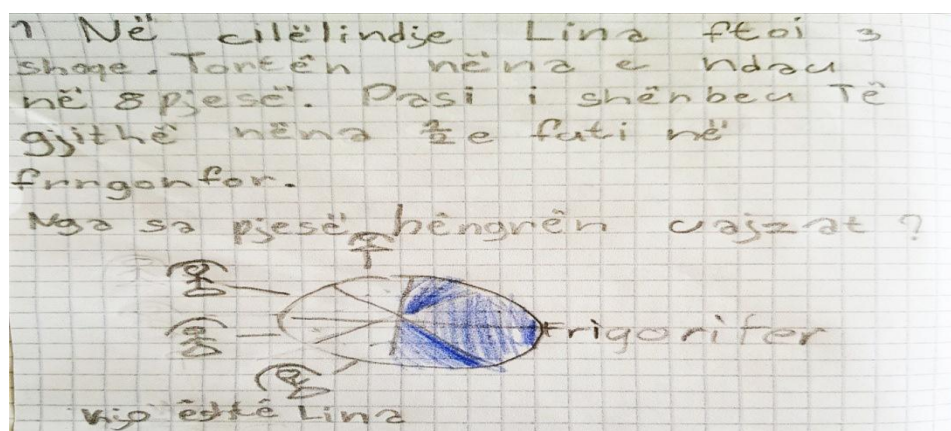 1 Në cilëlindje Lina ftoi 3
shoqe. Tortën nëna e ndau
në 8 pjesë. Pasi i shënbeu Të
gjithë nëna e futi në
fringonfor.
Nga sa pjesë hëngrën vajzat ?
Frigorifer
kjo është Lina